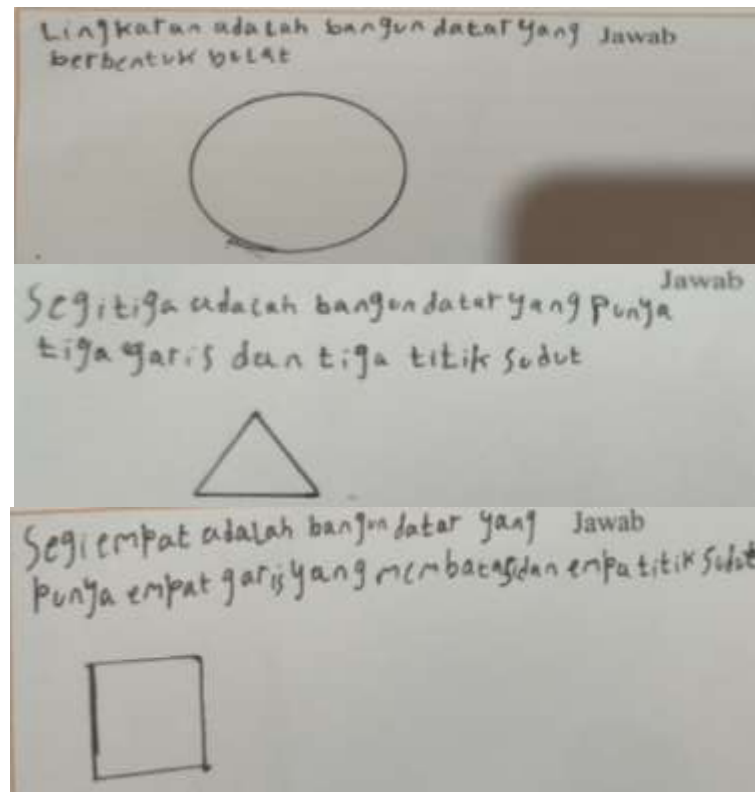 Lingkaran adalah bangun datar yang Jawab
berbentuk bulat
Jawab
Segitiga adalah bangun datar yang punya
tiga garis dan tiga titik sudut
Segi empat adalah bangun datar yang Jawab
punya empat garis yang membatasi dan empa titik sudut